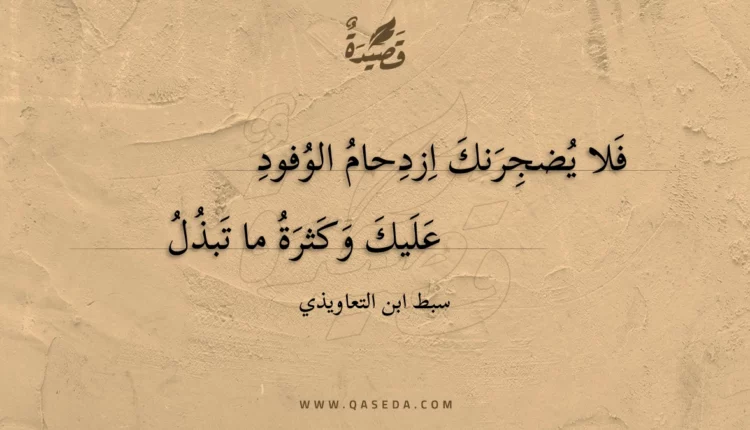 قَصِيْدَةٌ
فَلا يُضجِرَنكَ اِزدِحامُ الوُفودِ
عَلَيكَ وَكَثرَةُ ما تَبذُلُ
سبط ابن التعاويذي
WWW.QASEDA.COM